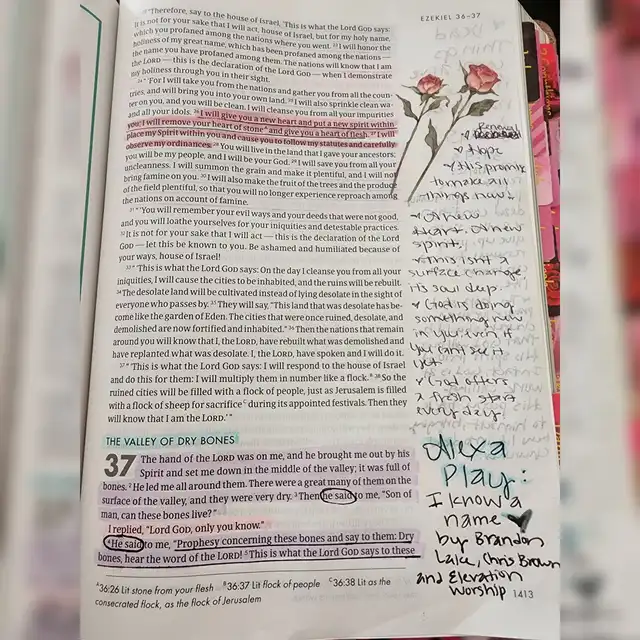 EZEKIEL 36–37
22 "Therefore, say to the house of Israel, 'This is what the Lord GOD says:
It is not for your sake that I will act, house of Israel, but for my holy name,
which you profaned among the nations where you went. 23 I will honor the
holiness of my great name, which has been profaned among the nations —
the name you have profaned among them. The nations will know that I am
the LORD — this is the declaration of the Lord GOD — when I demonstrate
my holiness through you in their sight.
24 " 'For I will take you from the nations and gather you from all the coun-
tries, and will bring you into your own land. 25 I will also sprinkle clean wa-
ter on you, and you will be clean. I will cleanse you from all your impurities
and all your idols. 26 I will give you a new heart and put a new spirit within
you; I will remove your heart of stone A and give you a heart of flesh. 27 I will
place my Spirit within you and cause you to follow my statutes and carefully
observe my ordinances. 28 You will live in the land that I gave your ancestors;
you will be my people, and I will be your God. 29 I will save you from all your
uncleanness. I will summon the grain and make it plentiful, and I will not
bring famine on you. 30 I will also make the fruit of the trees and the produce
of the field plentiful, so that you will no longer experience reproach among
the nations on account of famine.
31 " 'You will remember your evil ways and your deeds that were not good,
and you will loathe yourselves for your iniquities and detestable practices.
32 It is not for your sake that I will act — this is the declaration of the Lord
GOD — let this be known to you. Be ashamed and humiliated because of
your ways, house of Israel!
33 " 'This is what the Lord GOD says: On the day I cleanse you from all your
iniquities, I will cause the cities to be inhabited, and the ruins will be rebuilt.
34 The desolate land will be cultivated instead of lying desolate in the sight of
everyone who passes by. 35 They will say, "This land that was desolate has be-
come like the garden of Eden. The cities that were once ruined, desolate, and
demolished are now fortified and inhabited." 36 Then the nations that remain
around you will know that I, the LORD, have rebuilt what was demolished and
have replanted what was desolate. I, the LORD, have spoken and I will do it.
37 " 'This is what the Lord GOD says: I will respond to the house of Israel
and do this for them: I will multiply them in number like a flock. B 38 So the
ruined cities will be filled with a flock of people, just as Jerusalem is filled
with a flock of sheep for sacrifice C during its appointed festivals. Then they
will know that I am the LORD.' "
THE VALLEY OF DRY BONES
37 The hand of the LORD was on me, and he brought me out by his
Spirit and set me down in the middle of the valley; it was full of
bones. 2 He led me all around them. There were a great many of them on the
surface of the valley, and they were very dry. 3 Then he said to me, "Son of
man, can these bones live?"
I replied, "Lord GOD, only you know."
4 He said to me, "Prophesy concerning these bones and say to them: Dry
bones, hear the word of the LORD! 5 This is what the Lord GOD says to these
A 36:26 Lit stone from your flesh B 36:37 Lit flock of people C 36:38 Lit as the
consecrated flock, as the flock of Jerusalem
Renewal
Hope
His promise
to make all
things new
A new
heart. A new
spirit.
This isn't a
surface change
it's soul deep.
God is doing
something new
in you even if
you can't see it
yet
God offers
a fresh start
every day.
Alexa
Play:
I know a
name
by Brandon
Lake, Chris Brown
and Elevation
Worship
1413